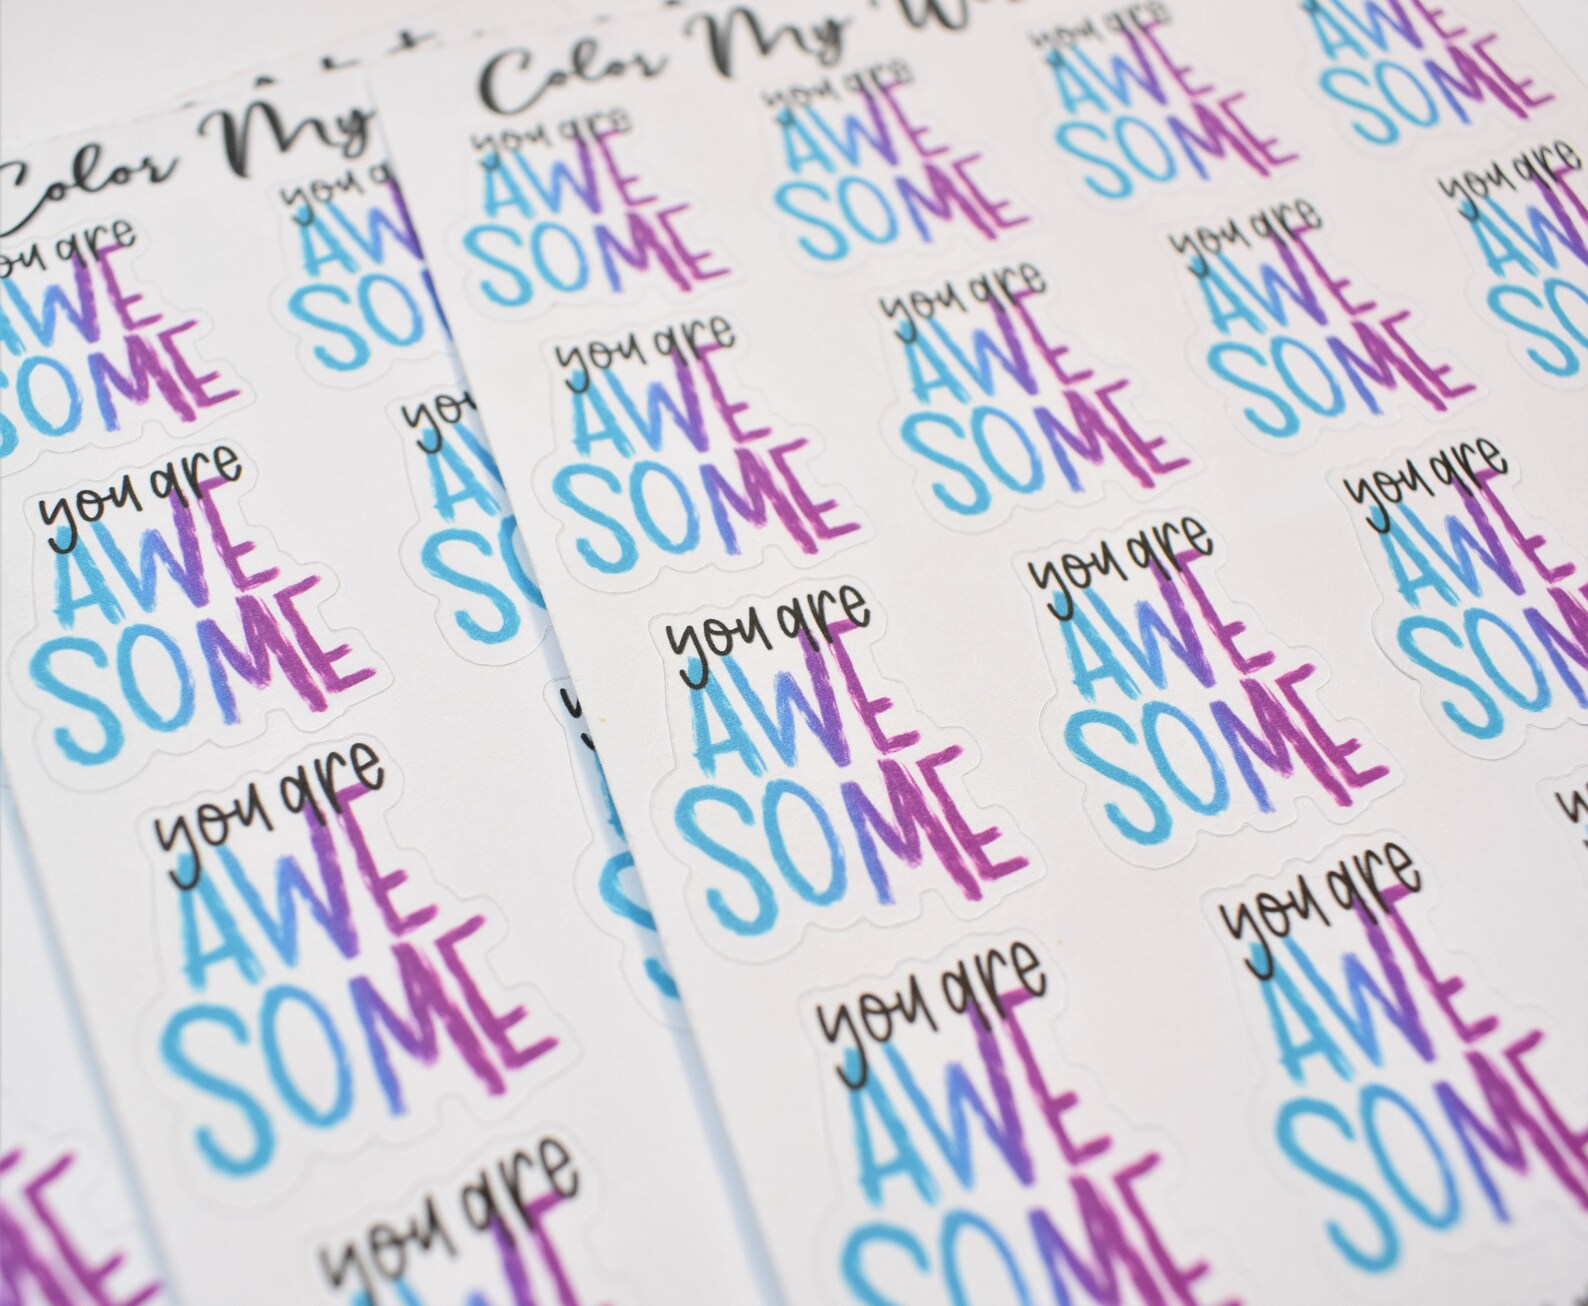 Color My
you are
AWE
SOME
you a
AW
SO
you are
AWE
SOME
you
A
SO
you are
AWE
SOME
S
you are
WE
ME
Color My W
you are
AWE
SOME
you are
AWE
SOME
you are
AWE
SOME
AWE
SOME
you are
AWE
SOME
you are
AWE
SOME
you are
AWE
SOME
you are
AWE
SO
you are
AWE
SOME
you are
AWE
SOME
you are
AWE
SOM
you are
AWE
SOME
you are
AWE
SOME